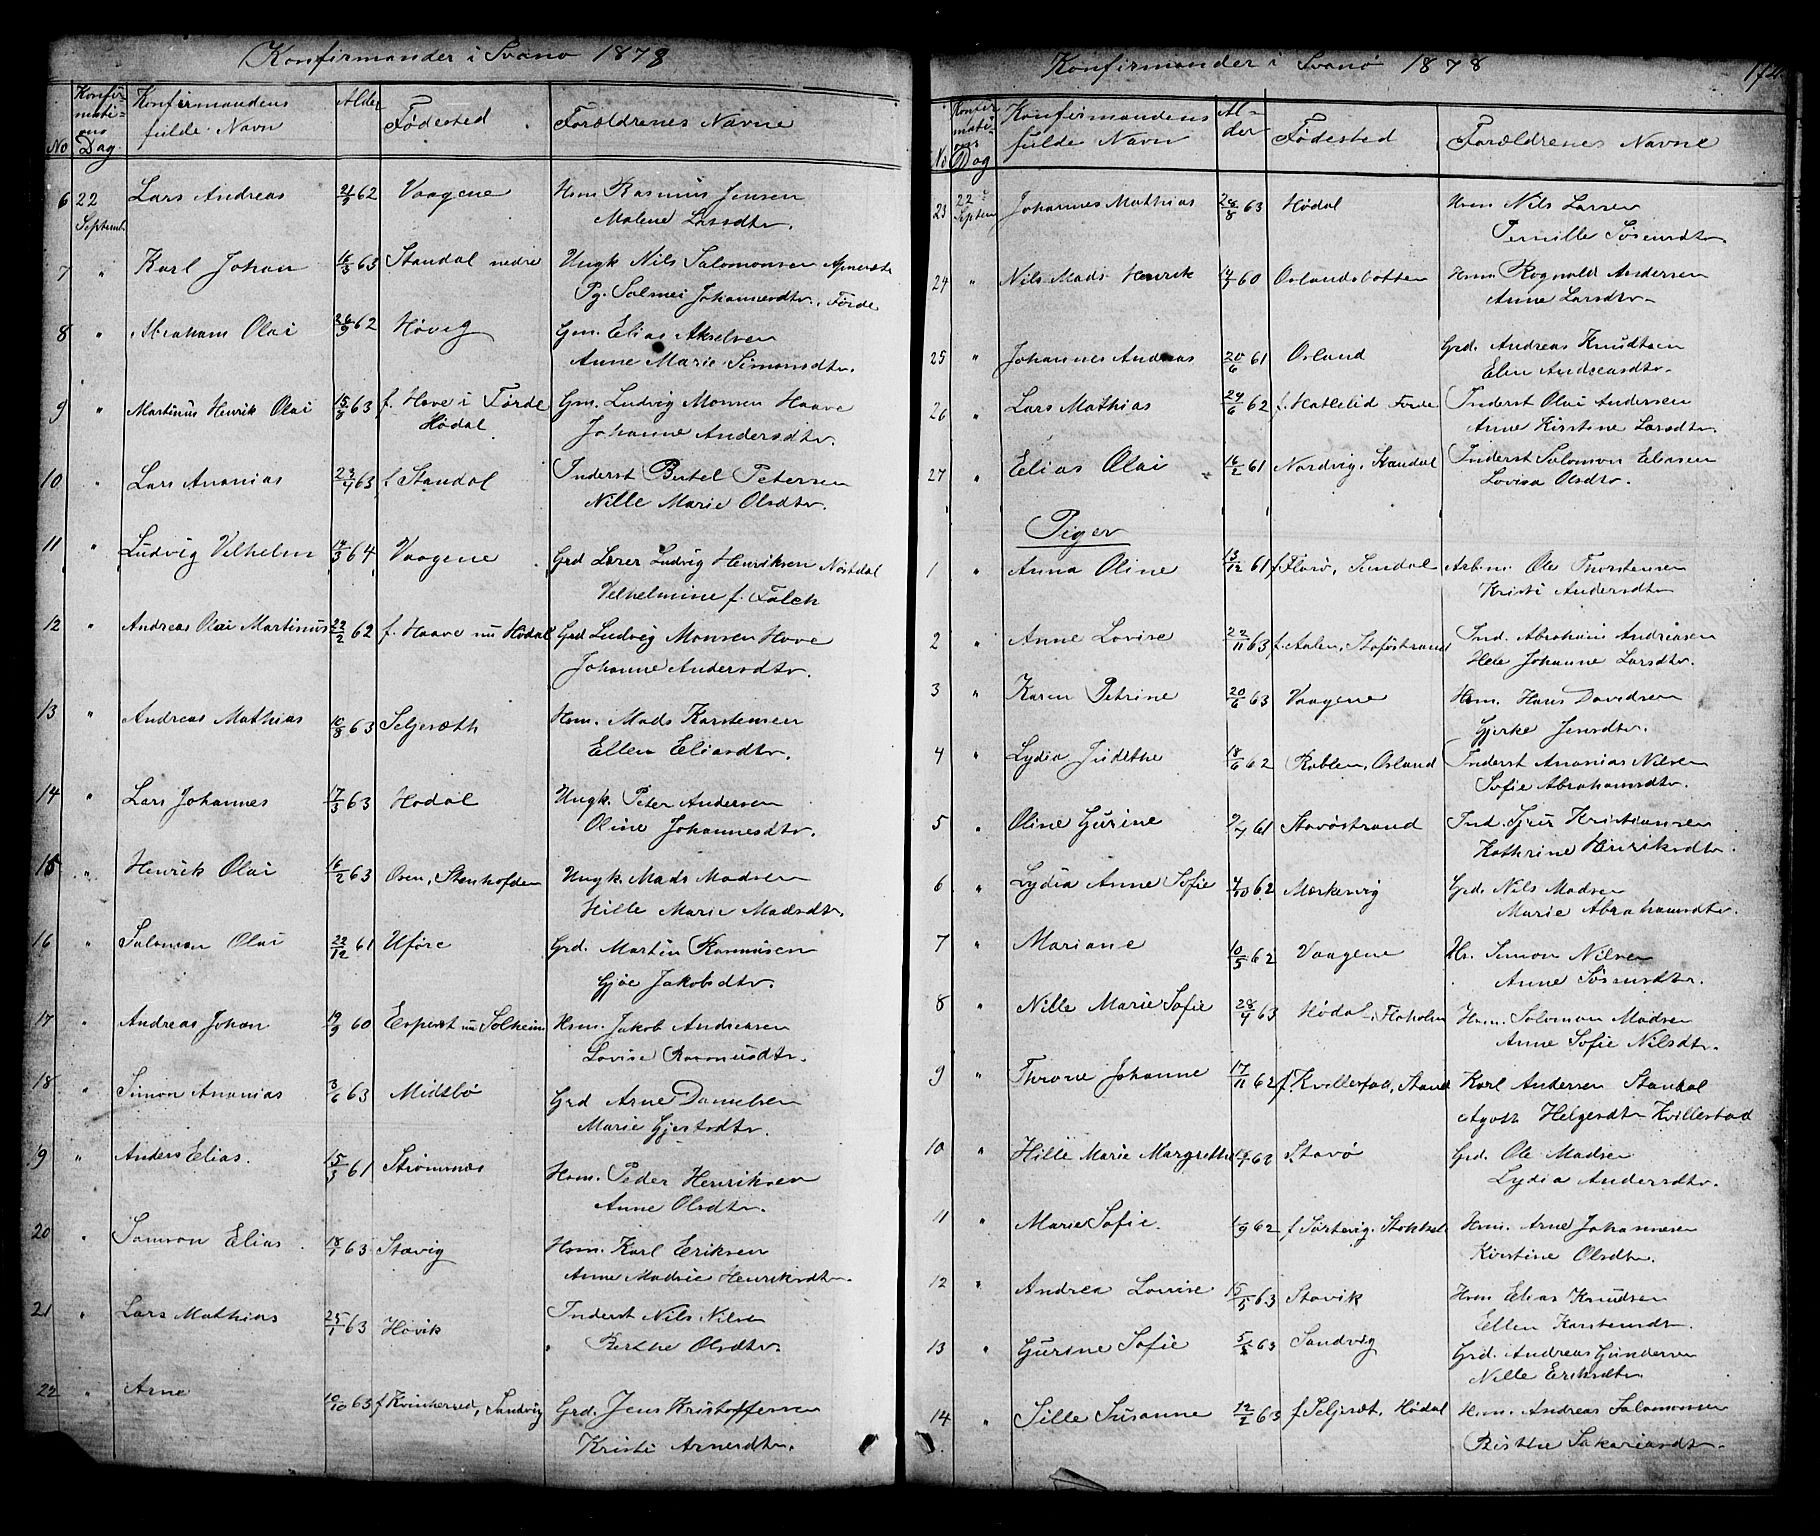 Konfirmander i Svanø 1878
No Konfirmations Dag Konfirmandens fulde Navn Alder Fødested Forældrenes Navne
6 22 Septemb. Lars Andreas 21/9 62 Vaagene Hsm Rasmus Jensen
Malene Larsdtr.
7 " Karl Johan 16/3 63 Standal nedre Ungk Nils Salomonsen
Pg. Solmei Johannesdtr, Førde
8 " Abraham Olai 26/9 62 Høvig Gm. Elias Akselsen
Anne Marie Simonsdtr.
9 " Martinus Henrik Olai 15/9 63 f. Hove i Førde Gm. Ludvig Monsen Haave
Hødal Johanne Andersdtr.
10 " Lars Ananias 23/4 63 f Standal Inderst Bertel Petersen
Nille Marie Olsdtr.
11 " Ludvig Vilhelm 14/3 64 Vaagene Grd Lærer Ludvig Henriksen Nøstdal
Velhelmine f. Falch
12 " Andreas Olai Martinus 22/2 62 f. Haave nu Hødal Grd Ludvig Monsen Hove
Johanne Andersdtr.
13 " Andreas Mathias 10/8 63 Seljesæth Hsm. Mads Karstensen
Ellen Eliasdtr.
14 " Lars Johannes 17/3 63 Hødal Ungk. Peter Andersen
Oline Johannesdtr.
15 " Henrik Olai 16/2 63 Osen, Stenhofden Ungk. Mads Madsen
Hille Marie Madsdtr.
16 " Salomon Olai 22/12 61 Uføre Grd. Martin Rasmusen
Gjøe Jakobsdtr.
17 " Andreas Johan 19/9 60 Espeset nu Solheim Hsm. Jakob Andreasen
Lovise Rasmusdtr.
18 " Simon Ananias 3/6 63 Midtbø Grd Arne Danielsen
Marie Gjertsdtr.
9 " Anders Elias. 15/3 61 Strømnæs Hsm. Peder Henriksen
Anne Olsdtr.
20 " Samson Elias 18/1 63 Stavig Hsm. Karl Eriksen
Anne Madrie Henriksdtr.
21 " Lars Mathias 25/1 63 Høvik Inderst Nils Nilsen
Berthe Olsdtr.
22 " Arne 19/10 63 f Kvinherred, Sandvig Grd. Jens Kristoffersen
Kristi Arnesdtr.
Konfirmander i Svanø 1878 172.
No Konfirmations Dag Konfirmandens fulde Navn Alder Fødested Forældrenes Navne
23 22 Septem Johannes Mathias 28/8 63 Hødal Hsm Nils Larsen
Pernille Sørensdtr
24 " Nils Mads Henrik 14/5 60 Oslandsbotten Hsm Rognald Andersen
Anne Larsdtr.
25 " Johannes Andreas 20/6 61 Osland Grd. Andreas Knudtsen
Elen Andreasdtr.
26 " Lars Mathias 24/6 62 f. Hatlelid Førde Inderst Olai Andersen
Anne Kirstine Larsdtr.
27 " Elias Olai 16/2 61 Nordvig, Standal Inderst Salomon Eliasen
Lovisa Olsdtr.
Piger
1 " Anna Oline 13/12 61 f Florø, Sundal Arbm. Ole Thorstensen
Kristi Andersdtr
2 " Anne Lovise 22/11 63 f. Aalen, Staføstrand Ind. Abraham Andreasen
Johanne Larsdtr.
3 " Karen Petrine 20/6 63 Vaagene Hsm. Hans Davidsen
Gjerke Jensdtr.
4 " Lydia Judithe 18/6 62 Osland Inderst Ananias Nilsen
Sofie Abrahamsdtr.
5 " Oline Gurine 2/4 61 Stavøstrand Ind. Sjur Kristiansen
Kathrine Henriksdtr.
6 " Lydia Anne Sofie 4/10 62 Mærkevig Grd. Nils Madsen
Marie Abrahamsdtr.
7 " Mariane 10/5 62 Vaagene Hr. Simon Nilsen
Anne Sørensdtr.
8 " Nille Marie Sofie 28/4 63 Hødal, Floholm Hsm. Salomon Madsen
Anne Sofie Nilsdtr.
9 " Throne Johanne 17/11 62 f. Kvillestad, Stand Karl Andersen Standal
Agoth Helgesdtr Kvillestad
10 " Hille Marie Margrethe 62 Stavø Grd. Ole Madsen
Lydia Andersdtr.
11 " Marie Sofie. 1/9 62 f Sørtevig, Stokksel Hsm. Arne Johannesen
Kirstine Olsdtr.
12 " Andrea Lovise 15/5 63 Stavik Hsm Elias Knudsen
Ellen Karstensdtr.
13 " Gurine Sofie 63 Sandvig Grd. Andreas Gundersen
Nille Eriksdtr.
14 " Sille Susanne 12/2 63 f Seljeset, Hødal Hsm. Andreas Salomonsen
Birthe Sakariasdtr.